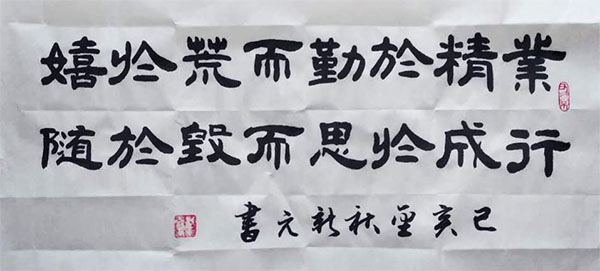 業精於勤而荒於嬉
行成於思而毀於随
己亥金秋新元書